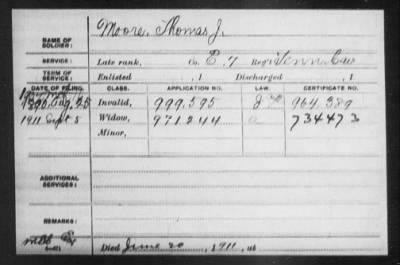 NAME OF SOLDIER: Moore, Thomas J.
SERVICE: Late rank, Co. E. 7 Reg't Tenn. Cav
TERM OF SERVICE: Enlisted , 1 Discharged , 1
DATE OF FILING. CLASS. APPLICATION NO. LAW. CERTIFICATE NO.
1890, Aug, 25 Invalid, 999,595 964,389
1911 Sept 5 Widow, 971244 a 734473
Minor,
ADDITIONAL SERVICES:
REMARKS:
Died June 20, 1911, at